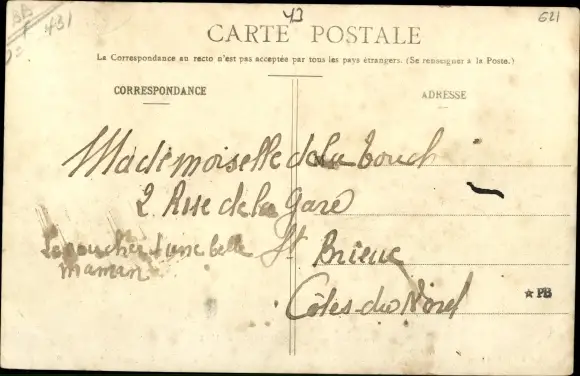 431
43
621
CARTE POSTALE
La Correspondance au recto n'est pas acceptée par tous les pays étrangers. (Se renseigner à la Poste.)
CORRESPONDANCE
ADRESSE
Mademoiselle de la Touch
2 Rue de la Gare
St Brieuc
Côtes du Nord
d'une belle
maman
★ PB